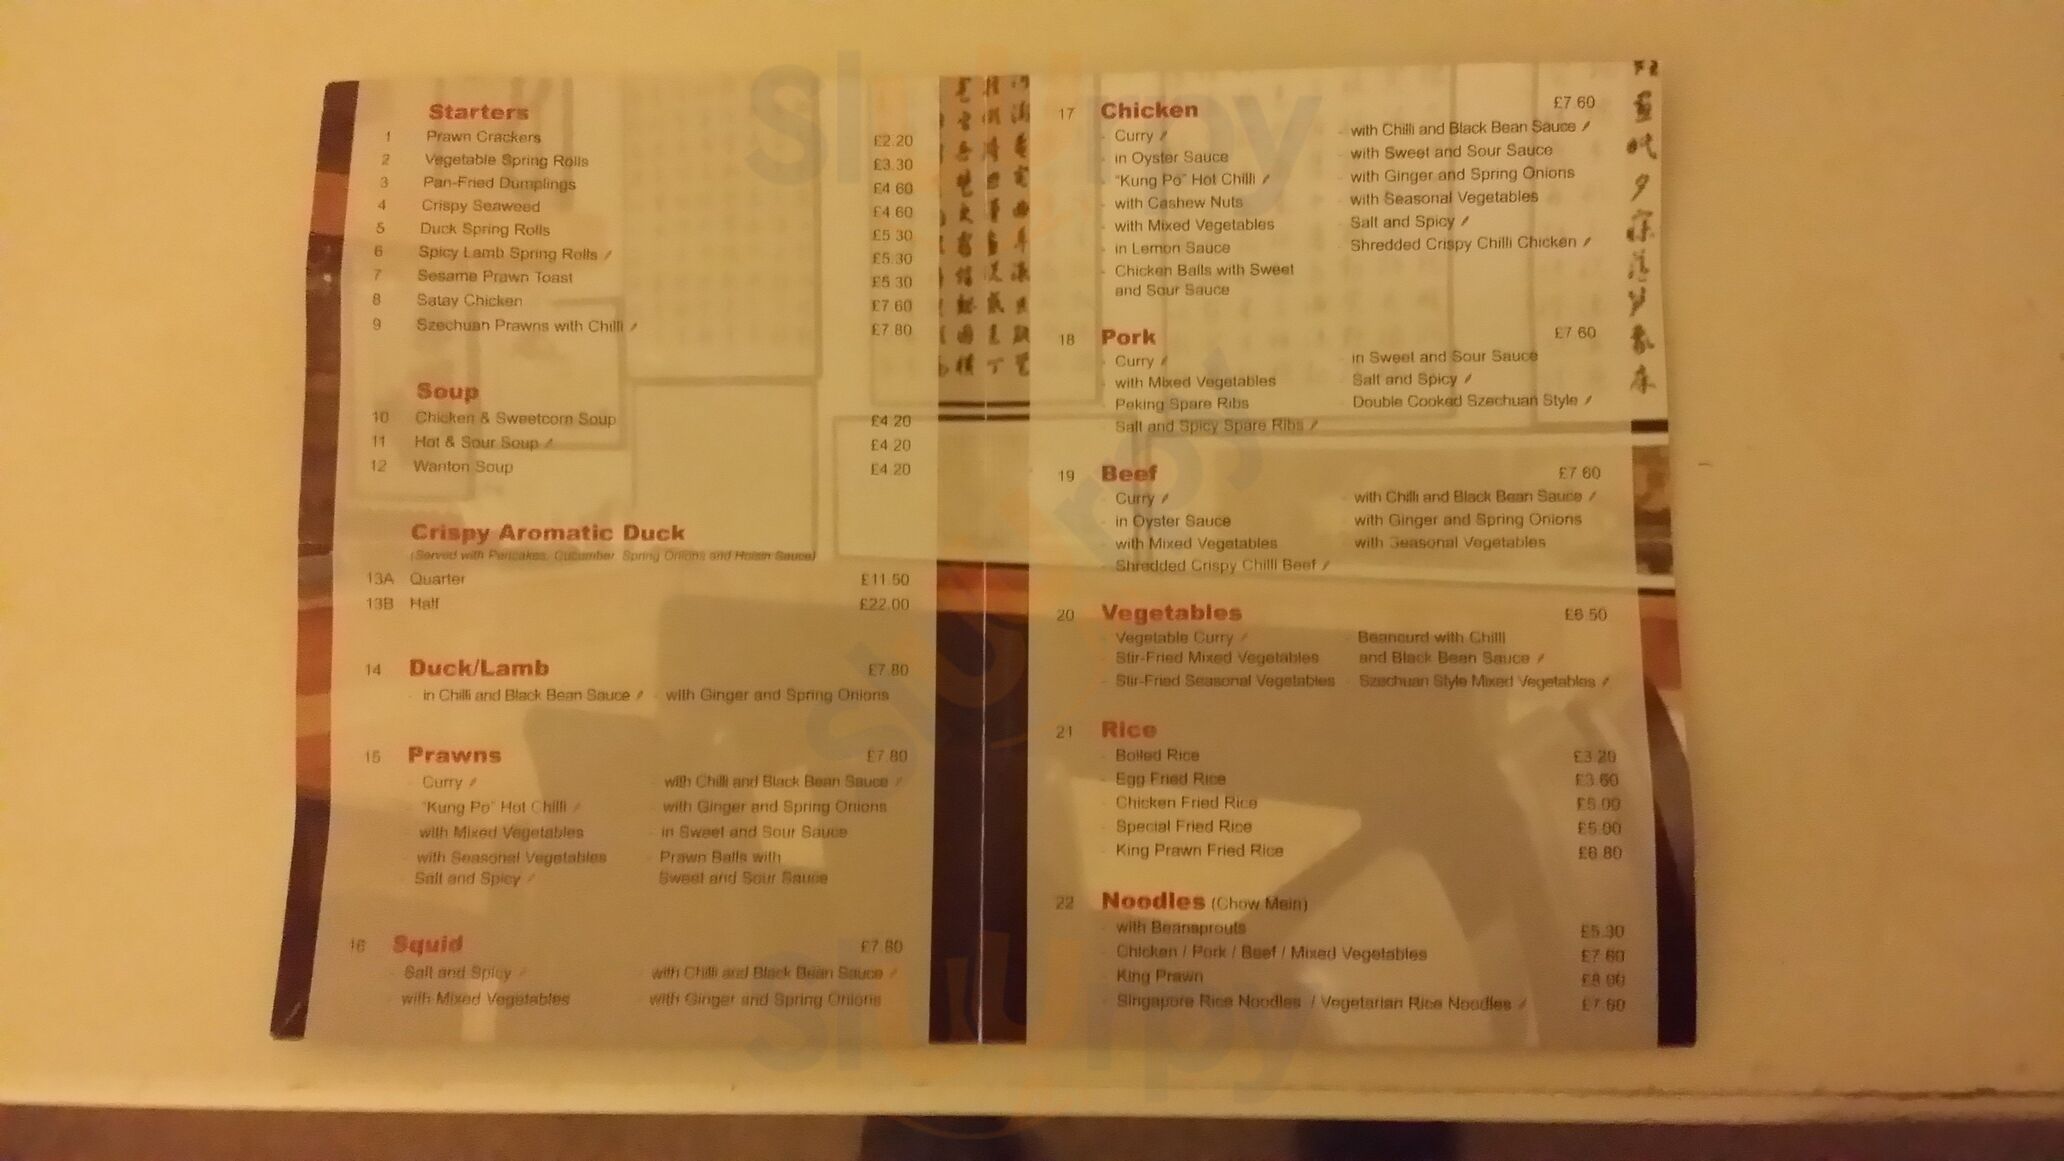 Starters
1 Prawn Crackers £2.20
2 Vegetable Spring Rolls £3.30
3 Pan-Fried Dumplings £4.60
4 Crispy Seaweed £4.60
5 Duck Spring Rolls £5.30
6 Spicy Lamb Spring Rolls £5.30
7 Sesame Prawn Toast £5.30
8 Satay Chicken £7.60
9 Szechuan Prawns with Chilli £7.80
Soup
10 Chicken & Sweetcorn Soup £4.20
11 Hot & Sour Soup £4.20
12 Wanton Soup £4.20
Crispy Aromatic Duck
(Served with Pancakes, Cucumber, Spring Onions and Hoisin Sauce)
13A Quarter £11.50
13B Half £22.00
14 Duck/Lamb £7.80
- in Chilli and Black Bean Sauce - with Ginger and Spring Onions
15 Prawns £7.80
- Curry - with Chilli and Black Bean Sauce
- "Kung Po" Hot Chilli - with Ginger and Spring Onions
- with Mixed Vegetables - in Sweet and Sour Sauce
- with Seasonal Vegetables - Prawn Balls with
- Salt and Spicy Sweet and Sour Sauce
16 Squid £7.80
- Salt and Spicy - with Chilli and Black Bean Sauce
- with Mixed Vegetables - with Ginger and Spring Onions
17 Chicken £7.60
- Curry - with Chilli and Black Bean Sauce
- in Oyster Sauce - with Sweet and Sour Sauce
- "Kung Po" Hot Chilli - with Ginger and Spring Onions
- with Cashew Nuts - with Seasonal Vegetables
- with Mixed Vegetables - Salt and Spicy
- in Lemon Sauce - Shredded Crispy Chilli Chicken
- Chicken Balls with Sweet
and Sour Sauce
18 Pork £7.60
- Curry - in Sweet and Sour Sauce
- with Mixed Vegetables - Salt and Spicy
- Peking Spare Ribs - Double Cooked Szechuan Style
- Salt and Spicy Spare Ribs
19 Beef £7.60
- Curry - with Chilli and Black Bean Sauce
- in Oyster Sauce - with Ginger and Spring Onions
- with Mixed Vegetables - with Seasonal Vegetables
- Shredded Crispy Chilli Beef
20 Vegetables £6.50
- Vegetable Curry - Beancurd with Chilli
- Stir-Fried Mixed Vegetables and Black Bean Sauce
- Stir-Fried Seasonal Vegetables - Szechuan Style Mixed Vegetables
21 Rice
- Boiled Rice £3.20
- Egg Fried Rice £3.60
- Chicken Fried Rice £5.00
- Special Fried Rice £5.00
- King Prawn Fried Rice £6.80
22 Noodles (Chow Mein)
- with Beansprouts £5.30
- Chicken / Pork / Beef / Mixed Vegetables £7.60
- King Prawn £8.00
- Singapore Rice Noodles / Vegetarian Rice Noodles £7.60
Sluurpy
Sluurpy
Sluurpy
Sluurpy